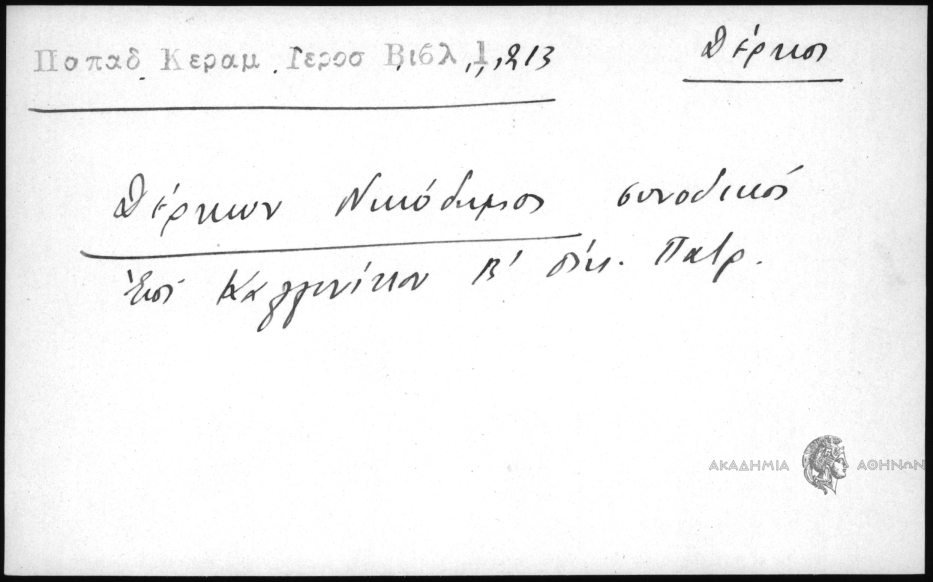 Παπαδ. Κεραμ. Ιεροσ Βιβλ 1,, 213
Δέρκοι
Δέρκων Νικόδημος συνοδικός
Ἐπί Καλλινίκου Β' οἰκ. Πατρ.
ΑΚΑΔΗΜΙΑ ΑΘΗΝΩΝ